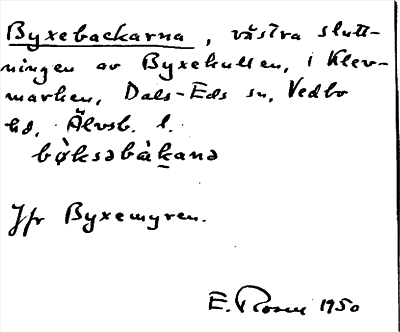 Byxebackarna, västra slutt-
ningen av Byxekullen, i Klev-
marken, Dals-Eds sn, Vedbo
hd, Älvsb. l.
bø̀ksəbàkanə
Jfr Byxemyren.
E. Rosén 1950